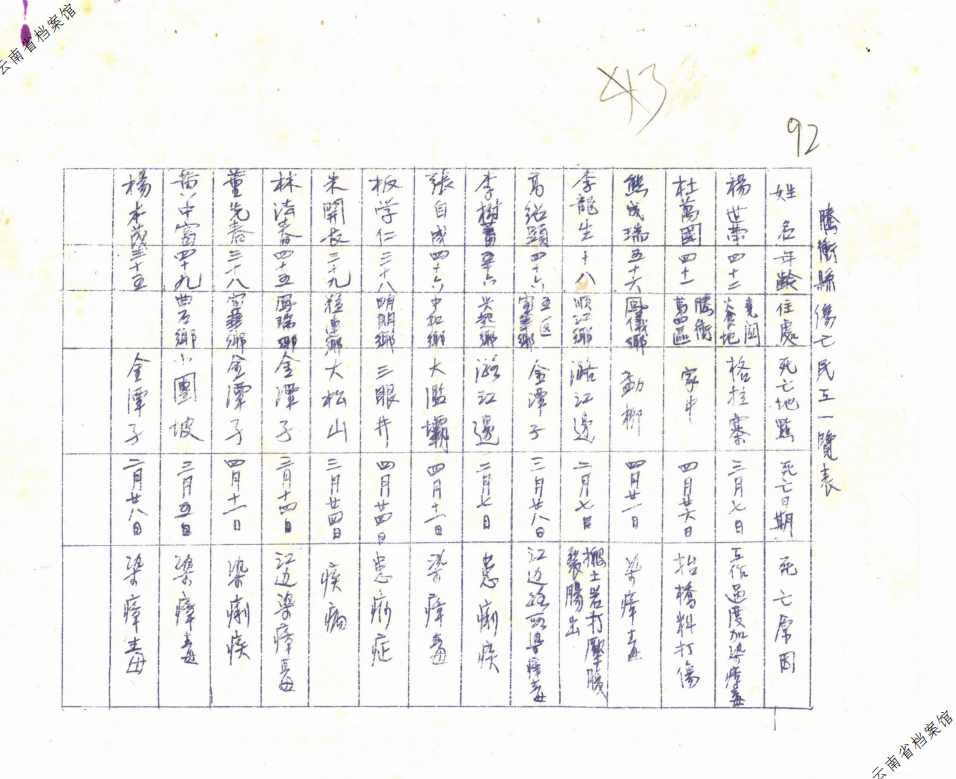 云南省档案馆
43
92
騰衝縣傷亡民工一覽表
姓名 年齡 住處 死亡地點 死亡日期 死亡原因
楊世榮 四十二 格拉寨 三月七日 工作過度加染瘴毒
杜萬國 四十一 騰衝 區 家中 四月廿六日 抬橋料打傷
熊成瑞 五十六 鳳儀鄉 勐柳 四月廿一日 染瘴毒
李龍生 十八 順江鄉 潞江邊 二月七日 搬土岩打壓腹裂腸出
高紹顯 四十六 五區 鄉 金潭子 三月廿八日 江边 瘴毒
李樹 五十六 鄉 潞江邊 二月七日 患痢疾
張自成 四十六 中和鄉 大濫壩 四月十一日 染瘴毒
板学仁 三十八 明朗鄉 三眼井 四月廿四日 患痧症
朱開 二十九 鄉 大松山 三月廿四日 疾病
林清春 四十五 鳳瑞鄉 金潭子 三月十四日 江边染瘴毒
董先春 三十八 鄉 金潭子 四月十一日 染痢疾
黄中富 四十九 曲石鄉 小團坡 三月五日 染瘴毒
楊本茂 三十五 金潭子 二月廿八日 染瘴毒
云南省档案馆